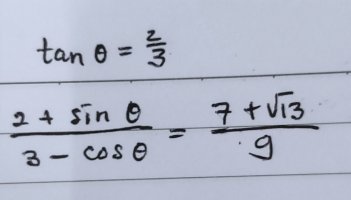 tan θ = 2/3
(2 + sin θ)/(3 - cos θ) = (7 + √13)/9